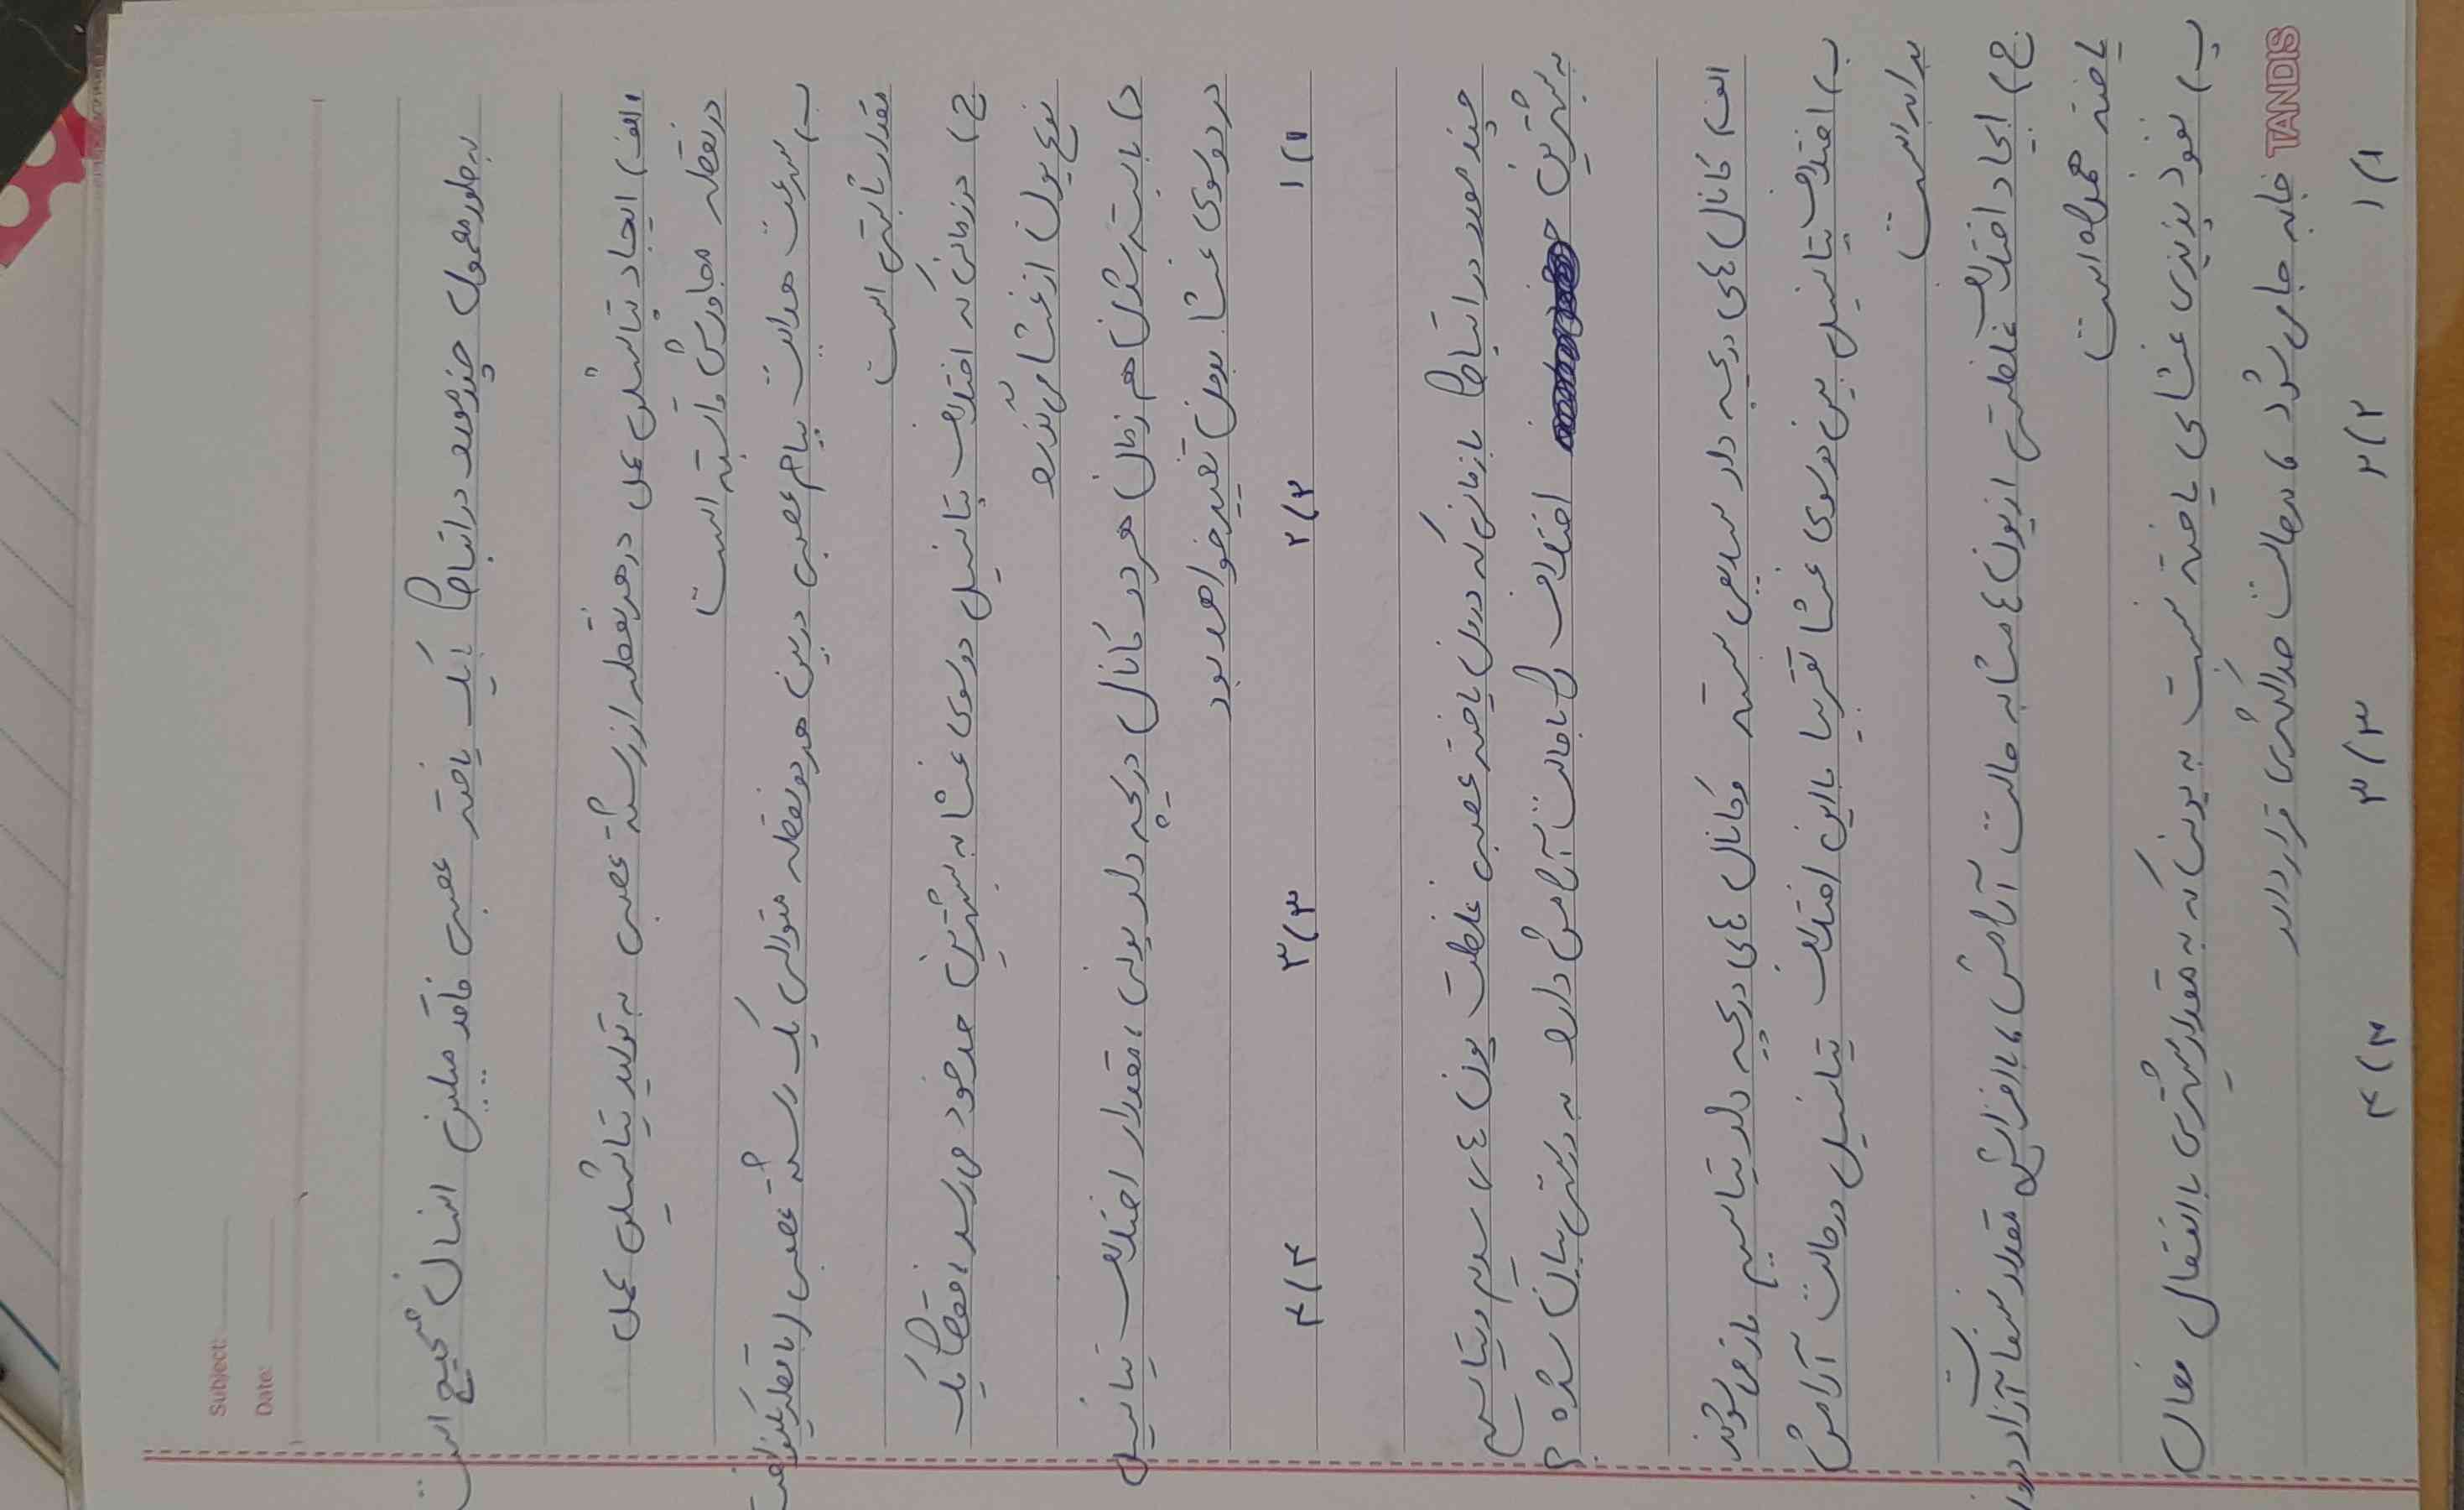 Subject:
Date:
به‌طور معمول چند مورد در ارتباط با یک یاختهٔ عصبی فاقد میلین انسان صحیح است
الف) ایجاد پتانسیل عمل در هر نقطه از رشتهٔ عصبی به تولید پتانسیل عمل
در نقطه مجاورش وابسته است
ب) سرعت هدایت پیام عصبی در بین هر دو نقطه متوالی یک رشتهٔ عصبی (با قطر یکنواخت
مقدار ثابتی است
ج) در زمانی که اختلاف پتانسیل دو سوی غشا به بیشترین حد خود می‌رسد، فقط یک
نوع یون از غشا می‌گذرد
د) با بسته شدن هم زمان هر دو کانال دریچه دار یونی، مقدار اختلاف پتانسیل
در دو سوی غشا بدون تغییر خواهد بود
۱) ۱ ۲) ۲ ۳) ۳ ۴) ۴
چند مورد در ارتباط با زمانی که درون یاخته عصبی غلظت یون های سدیم و پتاسیم
به بیشترین اختلاف را با حالت آرامش دارد به درستی بیان شده؟
الف) کانال های دریچه دار سدیمی بسته و کانال های دریچه دار پتاسیم باز می‌شوند
ب) اختلاف پتانسیل بین دو سوی غشا تقریبا با این اختلاف پتانسیل در حالت آرامش
برابر است
ج) ایجاد اختلاف غلظتی از یون ها مشابه حالت آرامش، با افزایش مقدار فسفات آزاد درون
یاخته همراه است
د) نفوذپذیری غشای یاخته نسبت به یونی که به مقدار بیشتری با انتقال فعال
جابه‌جا می‌شود، در حالت حداکثری قرار دارد
۱) ۱ ۲) ۲ ۳) ۳ ۴) ۴
TANDIS